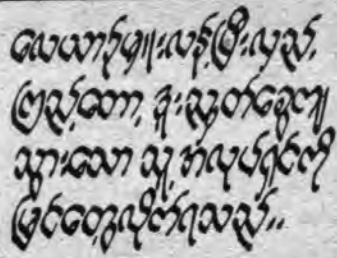 လေယာဉ်မှူးလန့်ဖြီးလှည့်
ကြည့်သော, ဒူးညွှတ်ခွေကျ
သွားသော သူ့အလုပ်ရှင်ကို
မြင်တွေ့လိုက်ရသည်..